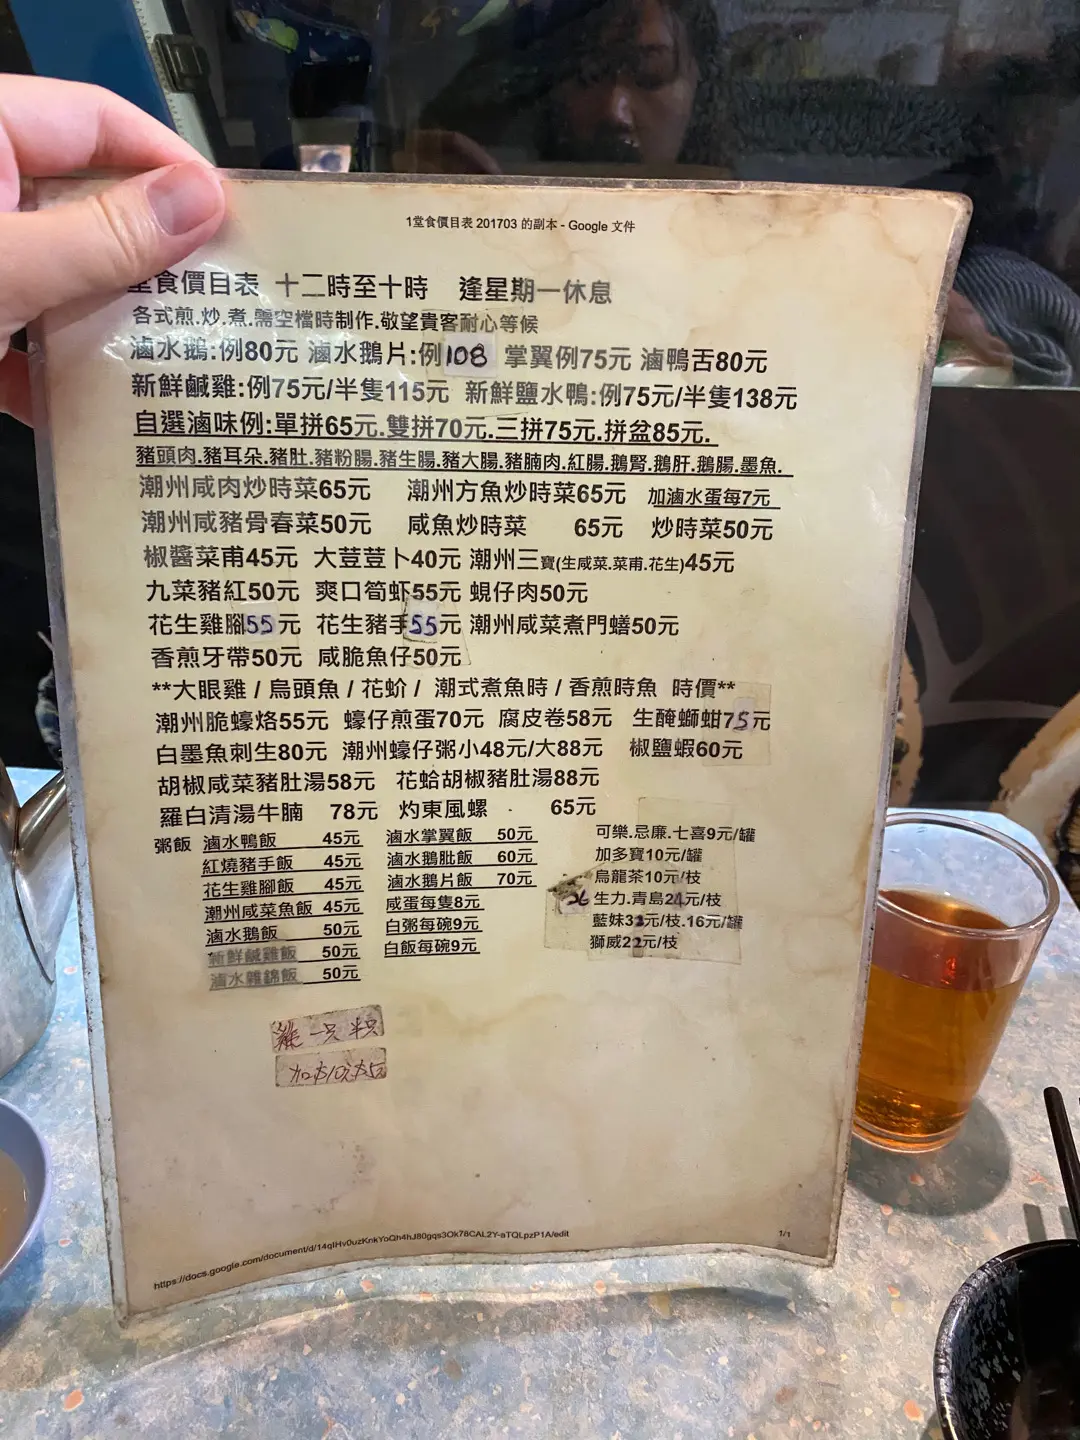 1堂食價目表 201703 的副本 - Google 文件
堂食價目表 十二時至十時 逢星期一休息
各式煎.炒.煮.需空檔時制作.敬望貴客耐心等候
滷水鵝:例80元 滷水鵝片:例108 掌翼例75元 滷鴨舌80元
新鮮鹹雞:例75元/半隻115元 新鮮鹽水鴨:例75元/半隻138元
自選滷味例:單拼65元.雙拼70元.三拼75元.拼盆85元.
豬頭肉.豬耳朵.豬肚.豬粉腸.豬生腸.豬大腸.豬腩肉.紅腸.鵝腎.鵝肝.鵝腸.墨魚.
潮州咸肉炒時菜65元 潮州方魚炒時菜65元 加滷水蛋每7元
潮州咸豬骨春菜50元 咸魚炒時菜 65元 炒時菜50元
椒醬菜甫45元 大荳荳卜40元 潮州三寶(生咸菜.菜甫.花生)45元
九菜豬紅50元 爽口筍虾55元 蜆仔肉50元
花生雞腳55元 花生豬手55元 潮州咸菜煮門鱔50元
香煎牙帶50元 咸脆魚仔50元
**大眼雞 / 烏頭魚 / 花蚧 / 潮式煮魚時 / 香煎時魚 時價**
潮州脆蠔烙55元 蠔仔煎蛋70元 腐皮卷58元 生醃螄蚶75元
白墨魚刺生80元 潮州蠔仔粥小48元/大88元 椒鹽蝦60元
胡椒咸菜豬肚湯58元 花蛤胡椒豬肚湯88元
羅白清湯牛腩 78元 灼東風螺 65元
粥飯 滷水鴨飯 45元 滷水掌翼飯 50元 可樂.忌廉.七喜9元/罐
紅燒豬手飯 45元 滷水鵝肶飯 60元 加多寶10元/罐
花生雞腳飯 45元 滷水鵝片飯 70元 烏龍茶10元/枝
潮州咸菜魚飯 45元 咸蛋每隻8元 26 生力.青島24元/枝
滷水鵝飯 50元 白粥每碗9元 藍妹32元/枝.16元/罐
新鮮鹹雞飯 50元 白飯每碗9元 獅威22元/枝
滷水雜錦飯 50元
雞 一只 半只
https://docs.google.com/document/d/14qIHv0uzKnkYoQh4hJ80gqs3Ok78CAL2Y-sTQLpzP1A/edit 1/1